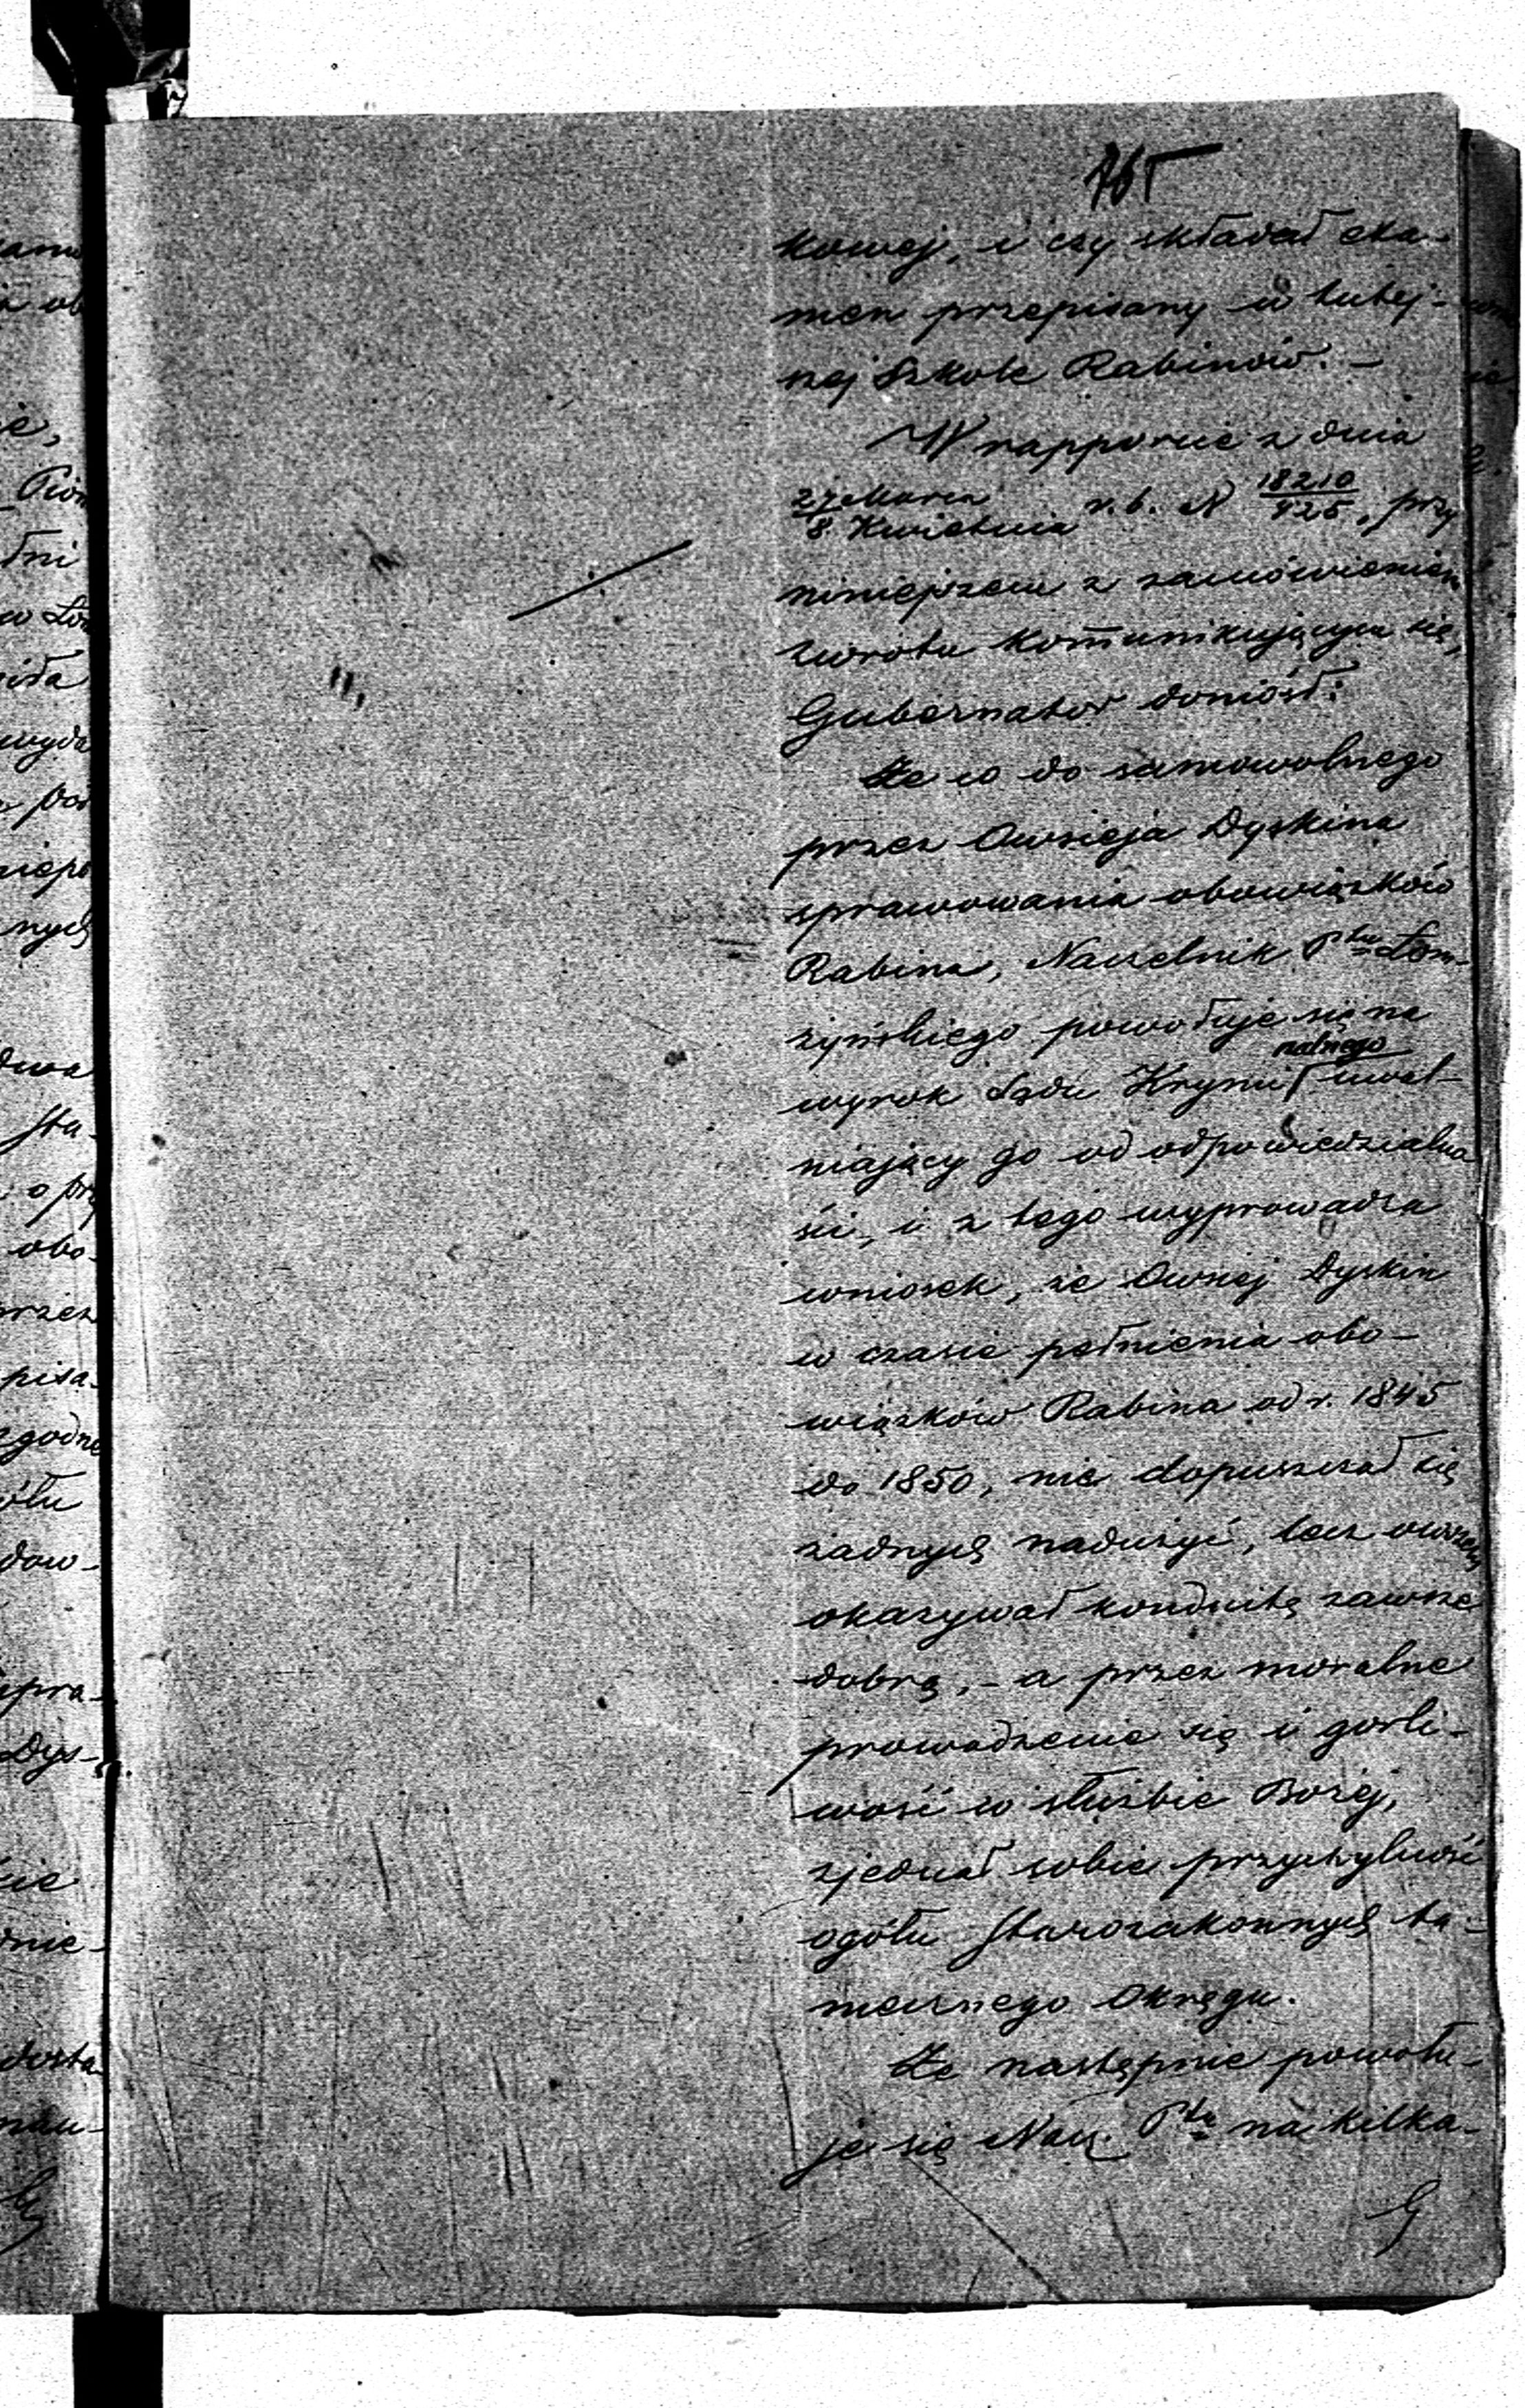 765
kowej, i czy składał exa-
men przepisany w tutej-
szej Szkole Rabinów. –
W rapporcie z dnia
27 Marca / 8 Kwietnia r. b. N 18210/425, przy
niniejszem z zamówieniem
zwrotu komunikującym się,
Gubernator doniósł:
Że co do samowolnego
przez Owsieja Dyskina
sprawowania obowiązków
Rabina, Naczelnik Ptu Łom-
żyńskiego powołuje się na
wyrok Sądu Krymi nalnego uwal-
niający go od odpowiedzialno
ści, i z tego wyprowadza
wniosek, że Owsiej Dyskin
w czasie pełnienia obo-
wiązków Rabina od r. 1845
do 1850, nie dopuszczał się
żadnych nadużyć, lecz owszem
okazywał konduitę zawsze
dobrą, – a przez moralne
prowadzenie się i gorli-
wość w służbie Bożej,
zjednał sobie przychylność
ogółu Starozakonnych ta-
mecznego Okręgu.
Że następnie powołu-
je się Nacz. Ptu na kilka-